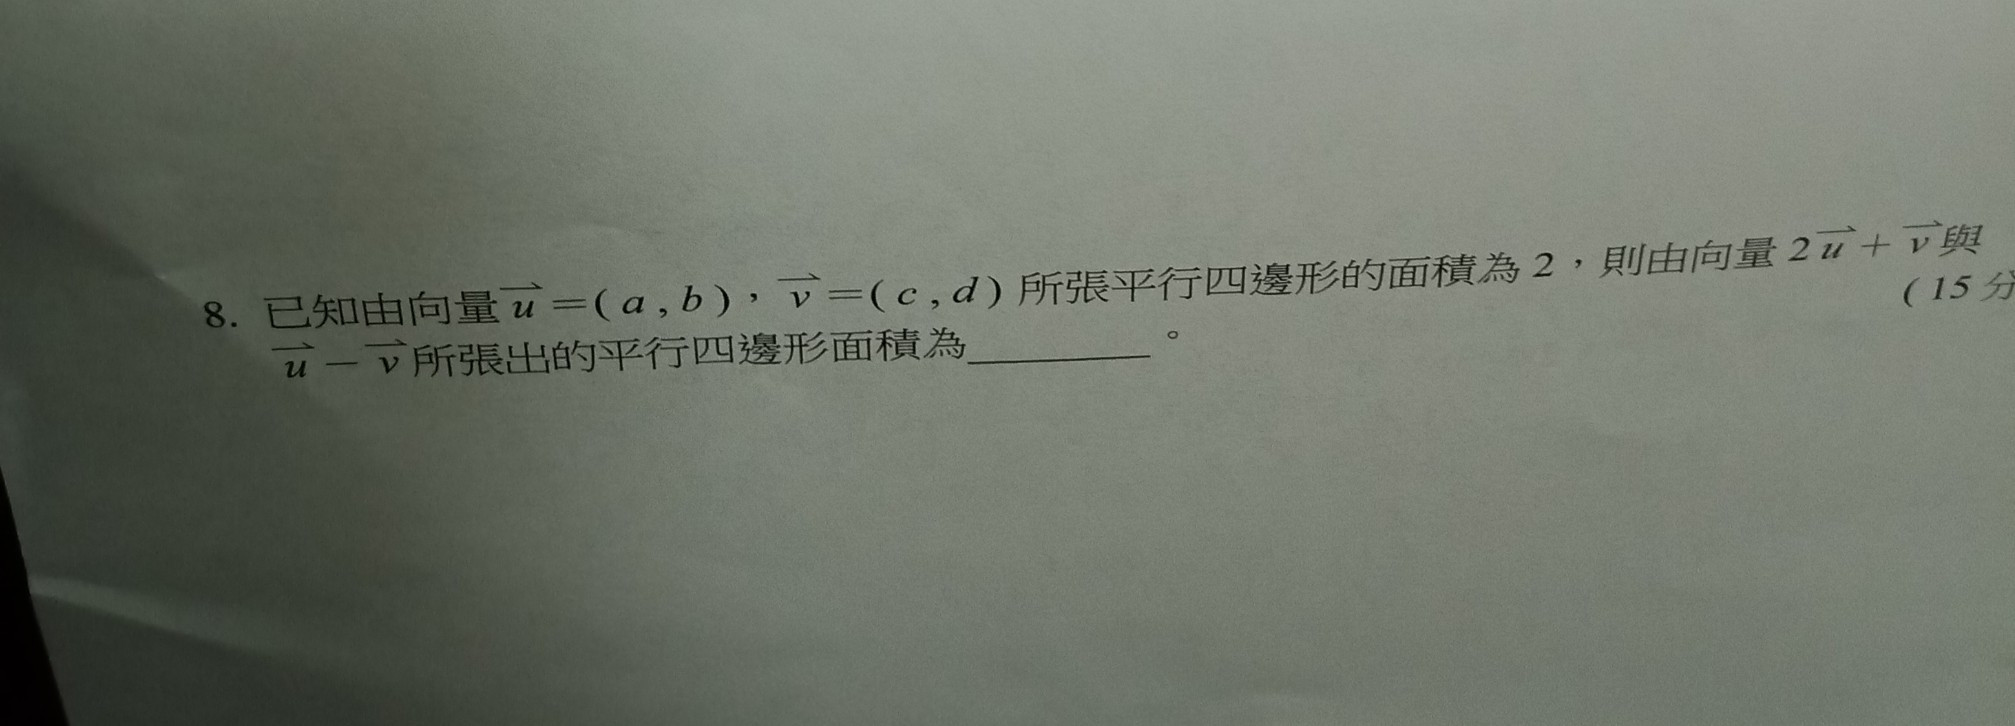 8. 已知由向量 $\overrightarrow{u}=(a,b)$,$\overrightarrow{v}=(c,d)$ 所張平行四邊形的面積為2,則由向量 $2\overrightarrow{u}+\overrightarrow{v}$ 與
(15分
$\overrightarrow{u}-\overrightarrow{v}$ 所張出的平行四邊形面積為________。